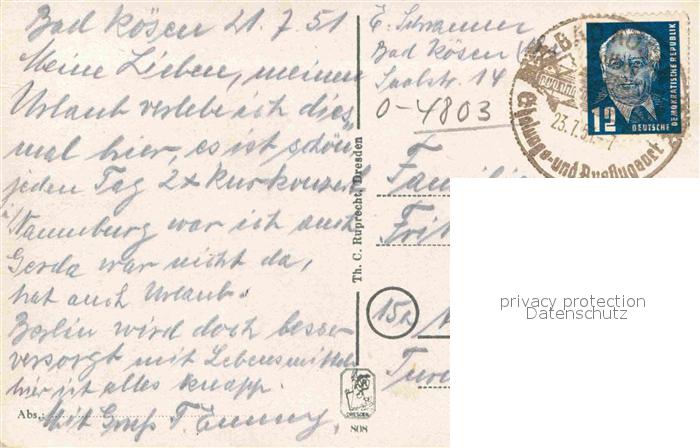 Bad Kösen 21.7.51
Meine Lieben, meinen
Urlaub verlebe ich dies
mal hier, es ist schön
jeden Tag 2x Kurkonzert
i/ Naumburg war ich auch
Gerda war nicht da,
hat auch Urlaub.
Berlin wird doch besser
versorgt mit Lebensmitteln
hier ist alles knapp.
Mit Gruß T. Emmy,
Abs.:
Th. C. Ruprecht, Dresden
DRESDEN
808
E. Schramm
Bad Kösen
Saalstr. 14
0-4803
Familie
Frit
15a
BA
23.7.51.-7
Erholungs- und Ausflugsort
12
DEUTSCHE
DEMOKRATISCHE REPUBLIK
privacy protection
Datenschutz